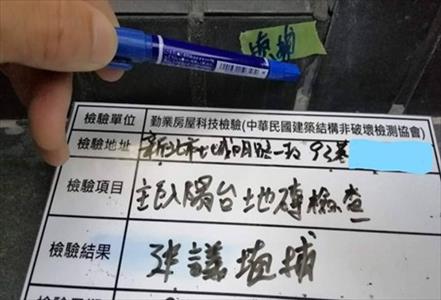 填補
檢驗單位 勤業房屋科技檢驗(中華民國建築結構非破壞檢測協會)
檢驗地址 新北市土城明德一路
檢驗項目 主臥陽台地磚檢查
檢驗結果 建議填補